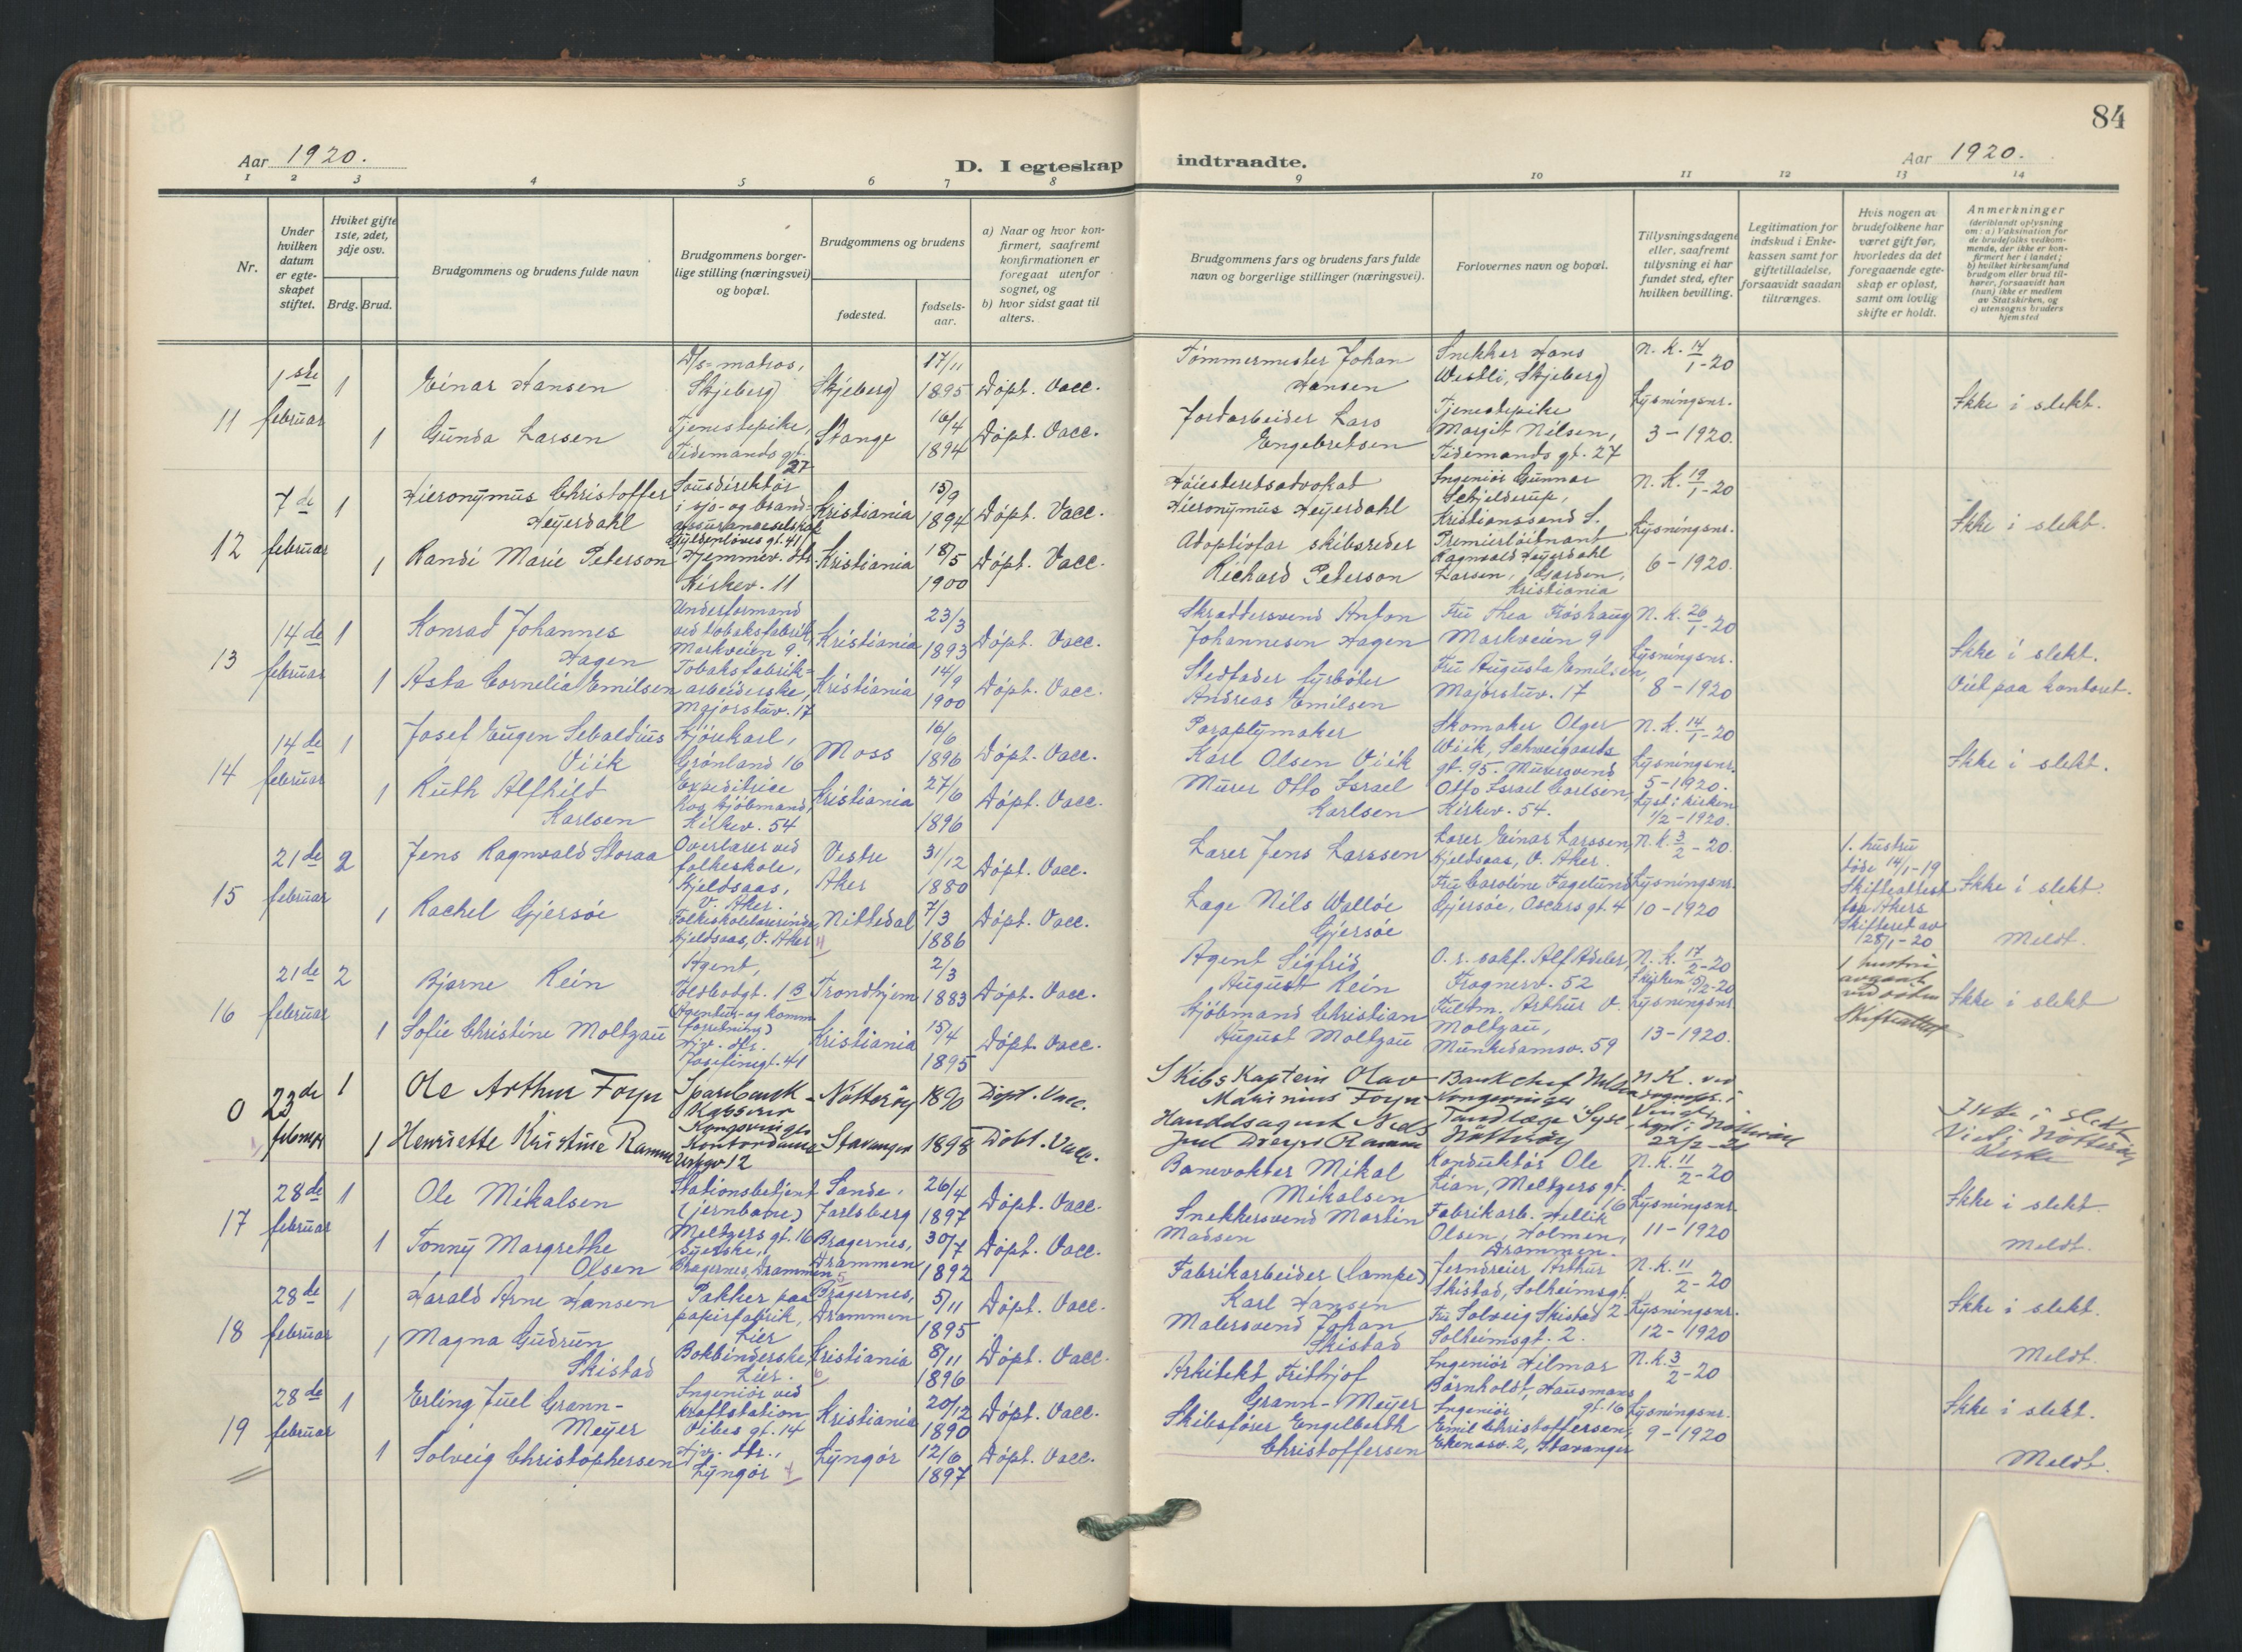 84
Aar 1920.
D. I egteskap indtraadte.
Aar 1920.
1 2 3 4 5 6 7 8 9 10 11 12 13 14
Nr.
Under hvilken datum er egteskapet stiftet.
Hviket gifte 1ste, 2det, 3dje osv.
Brdg. Brud.
Brudgommens og brudens fulde navn
Brudgommens borgerlige stilling (næringsvei) og bopæl.
Brudgommens og brudens
fødested.
fødselsaar.
a) Naar og hvor konfirmert, saafremt konfirmationen er foregaat utenfor sognet, og
b) hvor sidst gaat til alters.
Brudgommens fars og brudens fars fulde navn og borgerlige stillinger (næringsvei).
Forlovernes navn og bopæl.
Tillysningsdagene eller, saafremt tillysning ei har fundet sted, efter hvilken bevilling.
Legitimation for indskud i Enkekassen samt for giftetilladelse, forsaavidt saadan tiltrænges.
Hvis nogen av brudefolkene har været gift før, hvorledes da det foregaaende egteskap er opløst, samt om lovlig skifte er holdt.
Anmerkninger (deriblandt oplysning om: a) Vaksination for de brudefolks vedkommende, der ikke er konfirmert her i landet; b) hvilket kirkesamfund brudgom eller brud tilhører, forsaavidt han (hun) ikke er medlem av Statskirken, og c) utensogns bruders hjemsted
11 1ste februar
1 Einar Hansen D/s-matros, Skjeberg Skjeberg 17/11 1895 Døpt. Vacc. Tømmermester Johan Hansen Snekker Hans Westli, Skjeberg N. K. 14/1-20
1 Gunda Larsen Tjenestepike, Tidemands gt. 27 Stange 16/4 1894 Døpt. Vacc. Jordarbeider Lars Engebretsen Tjenestepike Margit Nilsen, Tidemands gt. 27 Lysningsnr. 3-1920. Ikke i slekt.
12 7de februar
1 Hieronymus Christoffer Heyerdahl i sjø- og brandassuranceselskab Gyldenløves gt. 41 Kristiania 15/9 1894 Døpt. Vacc. Høiesteretsadvokat Hieronymus Heyerdahl Ingeniør Gunnar Schjelderup, Kristianssand S. N. K. 19/1-20
1 Randi Marie Peterson Hjemmev. dtr. Kirkev. 11 Kristiania 18/5 1900 Døpt. Vacc. Adoptivfar skibsreder Richard Peterson Premierløitnant Ragnvald Heyerdahl Larsen, Garden, Kristiania Lysningsnr. 6-1920. Ikke i slekt.
13 14de februar
1 Konrad Johannes Hagen Underformand ved tobaksfabrik, Markveien 9. Kristiania 23/3 1893 Døpt. Vacc. Skræddersvend Anton Johannesen Hagen Fru Thea Frøshaug Markveien 9 N. K. 26/1-20
1 Asta Cornelia Emilsen Tobaksfabrikarbeiderske, Majorstuv. 17 Kristiania 14/9 1900 Døpt. Vacc. Stedfader fyrbøter Andreas Emilsen Fru Augusta Emilsen, Majorstuv. 17 Lysningsnr. 8-1920 Ikke i slekt. Viet paa kontoret.
14 14de februar
1 Josef Eugen Sebaldius Viik Kjørekarl, Grønland 16 Moss 16/6 1896 Døpt. Vacc. Paraplymaker Karl Olsen Viik Skomaker Olger Wiik, Schweigaards gt. 95. N. K. 14/1-20
1 Ruth Alfhild Karlsen Expeditrice hos kjøbmand, Kirkev. 54 Kristiania 27/6 1896 Døpt. Vacc. Murer Otto Israel Karlsen Murersvend Otto Israel Carlsen, Kirkev. 54. Lysningsnr. 5-1920. Lyst i kirken 1/2-1920. Ikke i slekt.
15 21de februar
2 Jens Ragnvald Storaa Overlærer ved folkeskole, Kjeldsaas, V. Aker. Vestre Aker 31/12 1880 Døpt. Vacc. Lærer Jens Larssen Lærer Einar Larssen, Kjeldsaas, V. Aker. N. K. 3/2-20. 1. hustru døde 14/1-19 Skifteattest fra Akers Skifteret av 28/1-20
1 Rachel Gjersøe Folkeskolelærerinde, Kjeldsaas, V. Aker Nittedal 7/3 1886 Døpt. Vacc. Læge Nils Walløe Gjersøe Fru Caroline Fagelund Gjersøe, Oscars gt. 4 Lysningsnr. 10-1920 Ikke i slekt. Meldt.
16 21de februar
2 Bjarne Rein Agent, Toldbodgt. 1 B (Agentur- og komm. forretning) Trondhjem 2/3 1883 Døpt. Vacc. Agent Sigfrid August Rein O. r. sakf. Alf Adeler, Frognerv. 52 N. K. 17/2-20 1 hustru
1 Sofie Christine Moltzau Hjv. dtr. Josefinegt. 41 Kristiania 15/4 1895 Døpt. Vacc. Kjøbmand Christian August Moltzau Fuldm. Arthur V. Moltzau, Munkedamsv. 59 Lysningsnr. 13-1920. Ikke i slekt
0 23de februar
1 Ole Arthur Foyn Sparebank Kasserer Kongsvinger Nøtterøy 1890 Døpt. Vacc. Skibskaptein Olav Marinius Foyn Bankchef Kongsvinger N. K. ved
1 Henriette Kristine Ramm Kontordame Stavanger 1898 Døbt. Vacc. Handelsagent Niels Juel Dreyer Ramm Tandlæge Syse Nøtterøy Lyst i Nøtterøy Ikke i slekt Viet i Nøtterøy Kirke
17 28de februar
1 Ole Mikalsen Stationsbetjent (jernbane) Meltzers gt. 16 Sande, Jarlsberg 26/4 1897 Døpt. Vacc. Banevokter Mikal Mikalsen Konduktør Ole Lian, Meltzers gt. 16 N. K. 11/2-20
1 Tonny Margrethe Olsen Syerske, Bragernes, Drammen Bragernes, Drammen 30/7 1892 Døpt. Vacc. Snekkersvend Martin Madsen Fabrikarb. Hellik Olsen, Holmen, Drammen. Lysningsnr. 11-1920 Ikke i slekt. Meldt.
18 28de februar
1 Harald Arne Hansen Pakker paa papirfabrik, Lier Bragernes, Drammen 5/11 1895 Døpt. Vacc. Fabrikarbeider (lampe) Karl Hansen Jerndreier Arthur Skistad, Solheimsgt. N. K. 11/2-20
1 Magna Gudrun Skistad Bokbinderske, Lier. Kristiania 8/11 1896 Døpt. Vacc. Malersvend Johan Skistad Fru Solveig Skistad Solheimsgt. 2. Lysningsnr. 12-1920 Ikke i slekt. Meldt.
19 28de februar
1 Erling Juel Grann-Meyer Ingeniør ved kraftstation Vibes gt. 14 Kristiania 20/12 1890 Døpt. Vacc. Arkitekt Frithjof Grann-Meyer Ingeniør Hilmar Bärnholdt, Hausmans gt. 16 N. K. 3/2-20
1 Solveig Christophersen Hjv. dtr., Lyngør Lyngør 12/6 1897 Døpt. Vacc. Skibsfører Engelberth Christoffersen Ingeniør Emil Christoffersen, Ekenæsv. 2, Stavanger Lysningsnr. 9-1920 Ikke i slekt. Meldt.